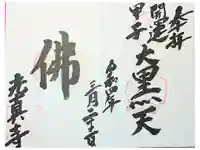 奉拝
開運
甲子
大黒天
令和四年
三月二十三日
佛
光真寺